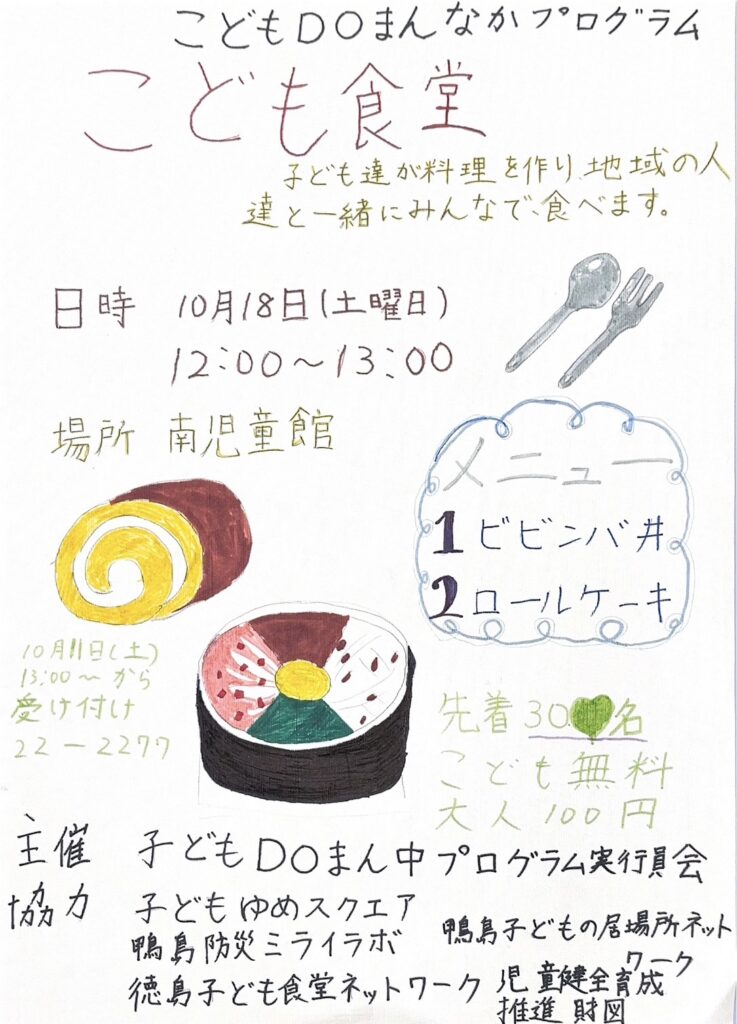 こどもDOまんなかプログラム
こども食堂
子ども達が料理を作り、地域の人
達と一緒にみんなで、食べます。
日時 10月18日(土曜日)
12:00~13:00
場所 南児童館
メニュー
1 ビビンバ丼
2 ロールケーキ
10月11日(土)
13:00~から
受け付け
22-2277
先着30名
こども無料
大人100円
主催 子どもDOまん中プログラム実行員会
協力 子どもゆめスクエア
鴨島防災ミライラボ
徳島子ども食堂ネットワーク
鴨島子どもの居場所ネット
ワーク
児童健全育成
推進財図